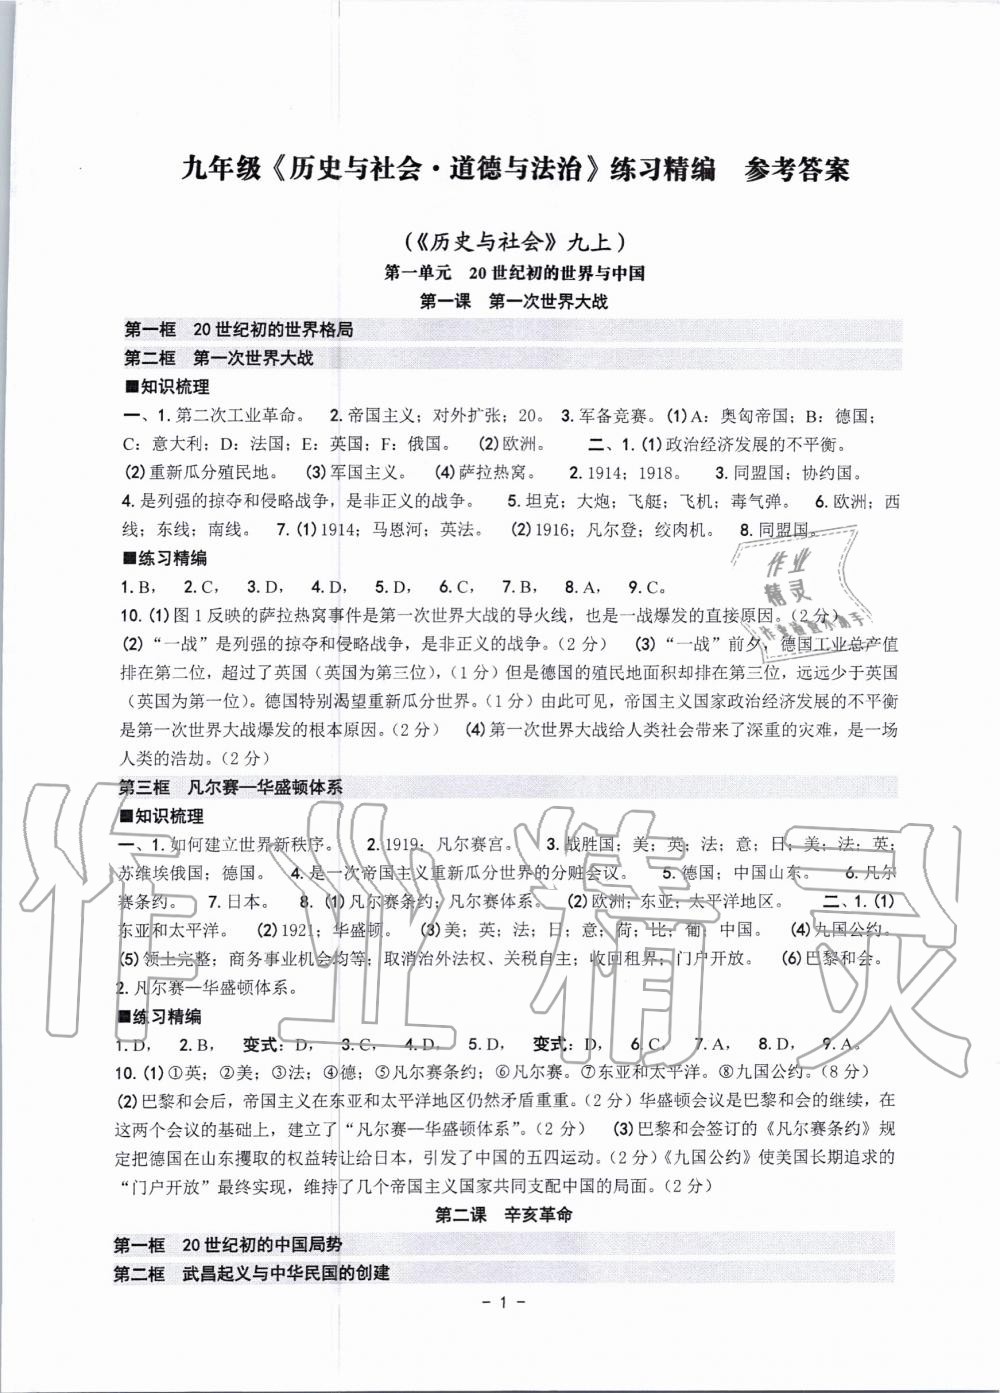 九年级《历史与社会·道德与法治》练习精编　参考答案
（《历史与社会》九上）
第一单元　20 世纪初的世界与中国
第一课　第一次世界大战
第一框　20 世纪初的世界格局
第二框　第一次世界大战
■知识梳理
一、1. 第二次工业革命。　2. 帝国主义；对外扩张；20。　3. 军备竞赛。(1)A：奥匈帝国；B：德国；
C：意大利；D：法国；E：英国；F：俄国。　(2)欧洲。　二、1. (1)政治经济发展的不平衡。
(2)重新瓜分殖民地。　(3)军国主义。　(4)萨拉热窝。　2. 1914；1918。　3. 同盟国；协约国。
4. 是列强的掠夺和侵略战争，是非正义的战争。　5. 坦克；大炮；飞艇；飞机；毒气弹。　6. 欧洲；西
线；东线；南线。　7. (1)1914；马恩河；英法。　(2)1916；凡尔登；绞肉机。　8. 同盟国。
■练习精编
1. B，　2. C，　3. D，　4. D，　5. D，　6. C，　7. B，　8. A，　9. C。
10. (1)图 1 反映的萨拉热窝事件是第一次世界大战的导火线，也是一战爆发的直接原因。(2 分)
(2)“一战”是列强的掠夺和侵略战争，是非正义的战争。(2 分)　(3)“一战”前夕，德国工业总产值
排在第二位，超过了英国（英国为第三位），(1 分)但是德国的殖民地面积却排在第三位，远远少于英国
（英国为第一位）。德国特别渴望重新瓜分世界。(1 分)由此可见，帝国主义国家政治经济发展的不平衡
是第一次世界大战爆发的根本原因。(2 分)　(4)第一次世界大战给人类社会带来了深重的灾难，是一场
人类的浩劫。(2 分)
第三框　凡尔赛—华盛顿体系
■知识梳理
一、1. 如何建立世界新秩序。　2. 1919；凡尔赛宫。　3. 战胜国；美；英；法；意；日；美；法；英；
苏维埃俄国；德国。　4. 是一次帝国主义重新瓜分世界的分赃会议。　5. 德国；中国山东。　6. 凡尔
赛条约。　7. 日本。　8. (1)凡尔赛条约；凡尔赛体系。　(2)欧洲；东亚；太平洋地区。　二、1. (1)
东亚和太平洋。　(2)1921；华盛顿。　(3)美；英；法；日；意；荷；比；葡；中国。　(4)九国公约。
(5)领土完整；商务事业机会均等；取消治外法权、关税自主；收回租界；门户开放。　(6)巴黎和会。
2. 凡尔赛—华盛顿体系。
■练习精编
1. D，　2. B，　变式：D，　3. C，　4. D，　5. D，　变式：D，　6. C，　7. A，　8. D，　9. A。
10. (1)①英；②美；③法；④德；⑤凡尔赛条约；⑥凡尔赛。⑦东亚和太平洋。⑧九国公约。(8 分)
(2)巴黎和会后，帝国主义在东亚和太平洋地区仍然矛盾重重。(2 分)华盛顿会议是巴黎和会的继续，在
这两个会议的基础上，建立了“凡尔赛—华盛顿体系”。(2 分)　(3)巴黎和会签订的《凡尔赛条约》规
定把德国在山东攫取的权益转让给日本，引发了中国的五四运动。(2 分)《九国公约》使美国长期追求的
“门户开放”最终实现，维持了几个帝国主义国家共同支配中国的局面。(2 分)
第二课　辛亥革命
第一框　20 世纪初的中国局势
第二框　武昌起义与中华民国的创建
- 1 -
作业精灵
作业
精灵